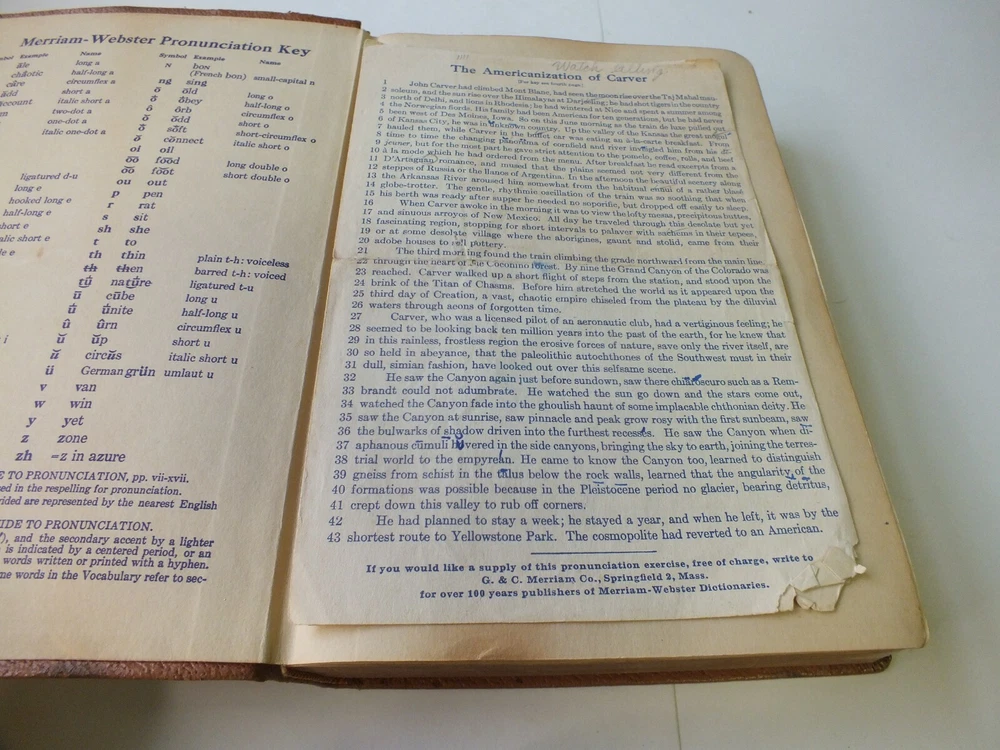 Merriam-Webster Pronunciation Key
Example Name Symbol Example Name
āle long a N bon
(French bon) small-capital n
chāotic half-long a ng sing
câre circumflex a ō ōld long o
ădd short a ō ōbey half-long o
account italic short a ô ôrb circumflex o
two-dot a ŏ ŏdd short o
one-dot a ŏ sŏft short-circumflex o
italic one-dot a ŏ cŏnnect italic short o
oi oil
o͞o fo͞od long double o
o͝o fo͝ot short double o
ligatured d-u ou out
long e p pen
hooked long e r rat
half-long e s sit
short e sh she
italic short e t to
th thin plain t-h: voiceless
th then barred t-h: voiced
natūre ligatured t-u
ū cūbe long u
ūnite half-long u
û ûrn circumflex u
ŭ ŭp short u
ŭ circŭs italic short u
ü German grün umlaut u
v van
w win
y yet
z zone
zh =z in azure
TO PRONUNCIATION, pp. vii-xvii.
used in the respelling for pronunciation.
are represented by the nearest English
TO PRONUNCIATION.
and the secondary accent by a lighter
is indicated by a centered period, or an
words written or printed with a hyphen.
words in the Vocabulary refer to sec-
Watch
The Americanization of Carver
1 John Carver had climbed Mont Blanc, had seen the moon rise over the Taj Mahal mau-
2 soleum, and the sun rise over the Himalayas at Darjeeling; he had shot tigers in the country
3 north of Delhi, and lions in Rhodesia; he had wintered at Nice and spent a summer among
4 the Norwegian fiords. His family had been American for ten generations, but he had never
5 been west of Des Moines, Iowa. So on this June morning as the train de luxe pulled out
6 of Kansas City, he was in unknown country. Up the valley of the Kansas the great mogul
7 hauled them, while Carver in the buffet car was eating an à-la-carte breakfast. From
8 time to time the changing panorama of cornfield and river inveigled him from his dé-
9 jeuner, but for the most part he gave strict attention to the pomelo, coffee, rolls, and beef
10 à la mode which he had ordered from the menu. After breakfast he read excerpts from a
11 D'Artagnan romance, and mused that the plains seemed not very different from the
12 steppes of Russia or the llanos of Argentina. In the afternoon the beautiful scenery along
13 the Arkansas River aroused him somewhat from the habitual ennui of a rather blasé
14 globe-trotter. The gentle, rhythmic oscillation of the train was so soothing that when
15 his berth was ready after supper he needed no soporific, but dropped off easily to sleep.
16 When Carver awoke in the morning it was to view the lofty mesas, precipitous buttes,
17 and sinuous arroyos of New Mexico. All day he traveled through this desolate but yet
18 fascinating region, stopping for short intervals to palaver with sachems in their tepees,
19 or at some desolate village where the aborigines, gaunt and stolid, came from their
20 adobe houses to sell pottery.
21 The third morning found the train climbing the grade northward from the main line
22 through the heart of the Coconino forest. By nine the Grand Canyon of the Colorado was
23 reached. Carver walked up a short flight of steps from the station, and stood upon the
24 brink of the Titan of Chasms. Before him stretched the world as it appeared upon the
25 third day of Creation, a vast, chaotic empire chiseled from the plateau by the diluvial
26 waters through aeons of forgotten time.
27 Carver, who was a licensed pilot of an aeronautic club, had a vertiginous feeling; he
28 seemed to be looking back ten million years into the past of the earth, for he knew that
29 in this rainless, frostless region the erosive forces of nature, save only the river itself, are
30 so held in abeyance, that the paleolithic autochthones of the Southwest must in their
31 dull, simian fashion, have looked out over this selfsame scene.
32 He saw the Canyon again just before sundown, saw there chiaroscuro such as a Rem-
33 brandt could not adumbrate. He watched the sun go down and the stars come out,
34 watched the Canyon fade into the ghoulish haunt of some implacable chthonian deity. He
35 saw the Canyon at sunrise, saw pinnacle and peak grow rosy with the first sunbeam, saw
36 the bulwarks of shadow driven into the furthest recesses. He saw the Canyon when di-
37 aphanous cumuli hovered in the side canyons, bringing the sky to earth, joining the terres-
38 trial world to the empyrean. He came to know the Canyon too, learned to distinguish
39 gneiss from schist in the talus below the rock walls, learned that the angularity of the
40 formations was possible because in the Pleistocene period no glacier, bearing detritus,
41 crept down this valley to rub off corners.
42 He had planned to stay a week; he stayed a year, and when he left, it was by the
43 shortest route to Yellowstone Park. The cosmopolite had reverted to an American.
If you would like a supply of this pronunciation exercise, free of charge, write to
G. & C. Merriam Co., Springfield 2, Mass.
for over 100 years publishers of Merriam-Webster Dictionaries.